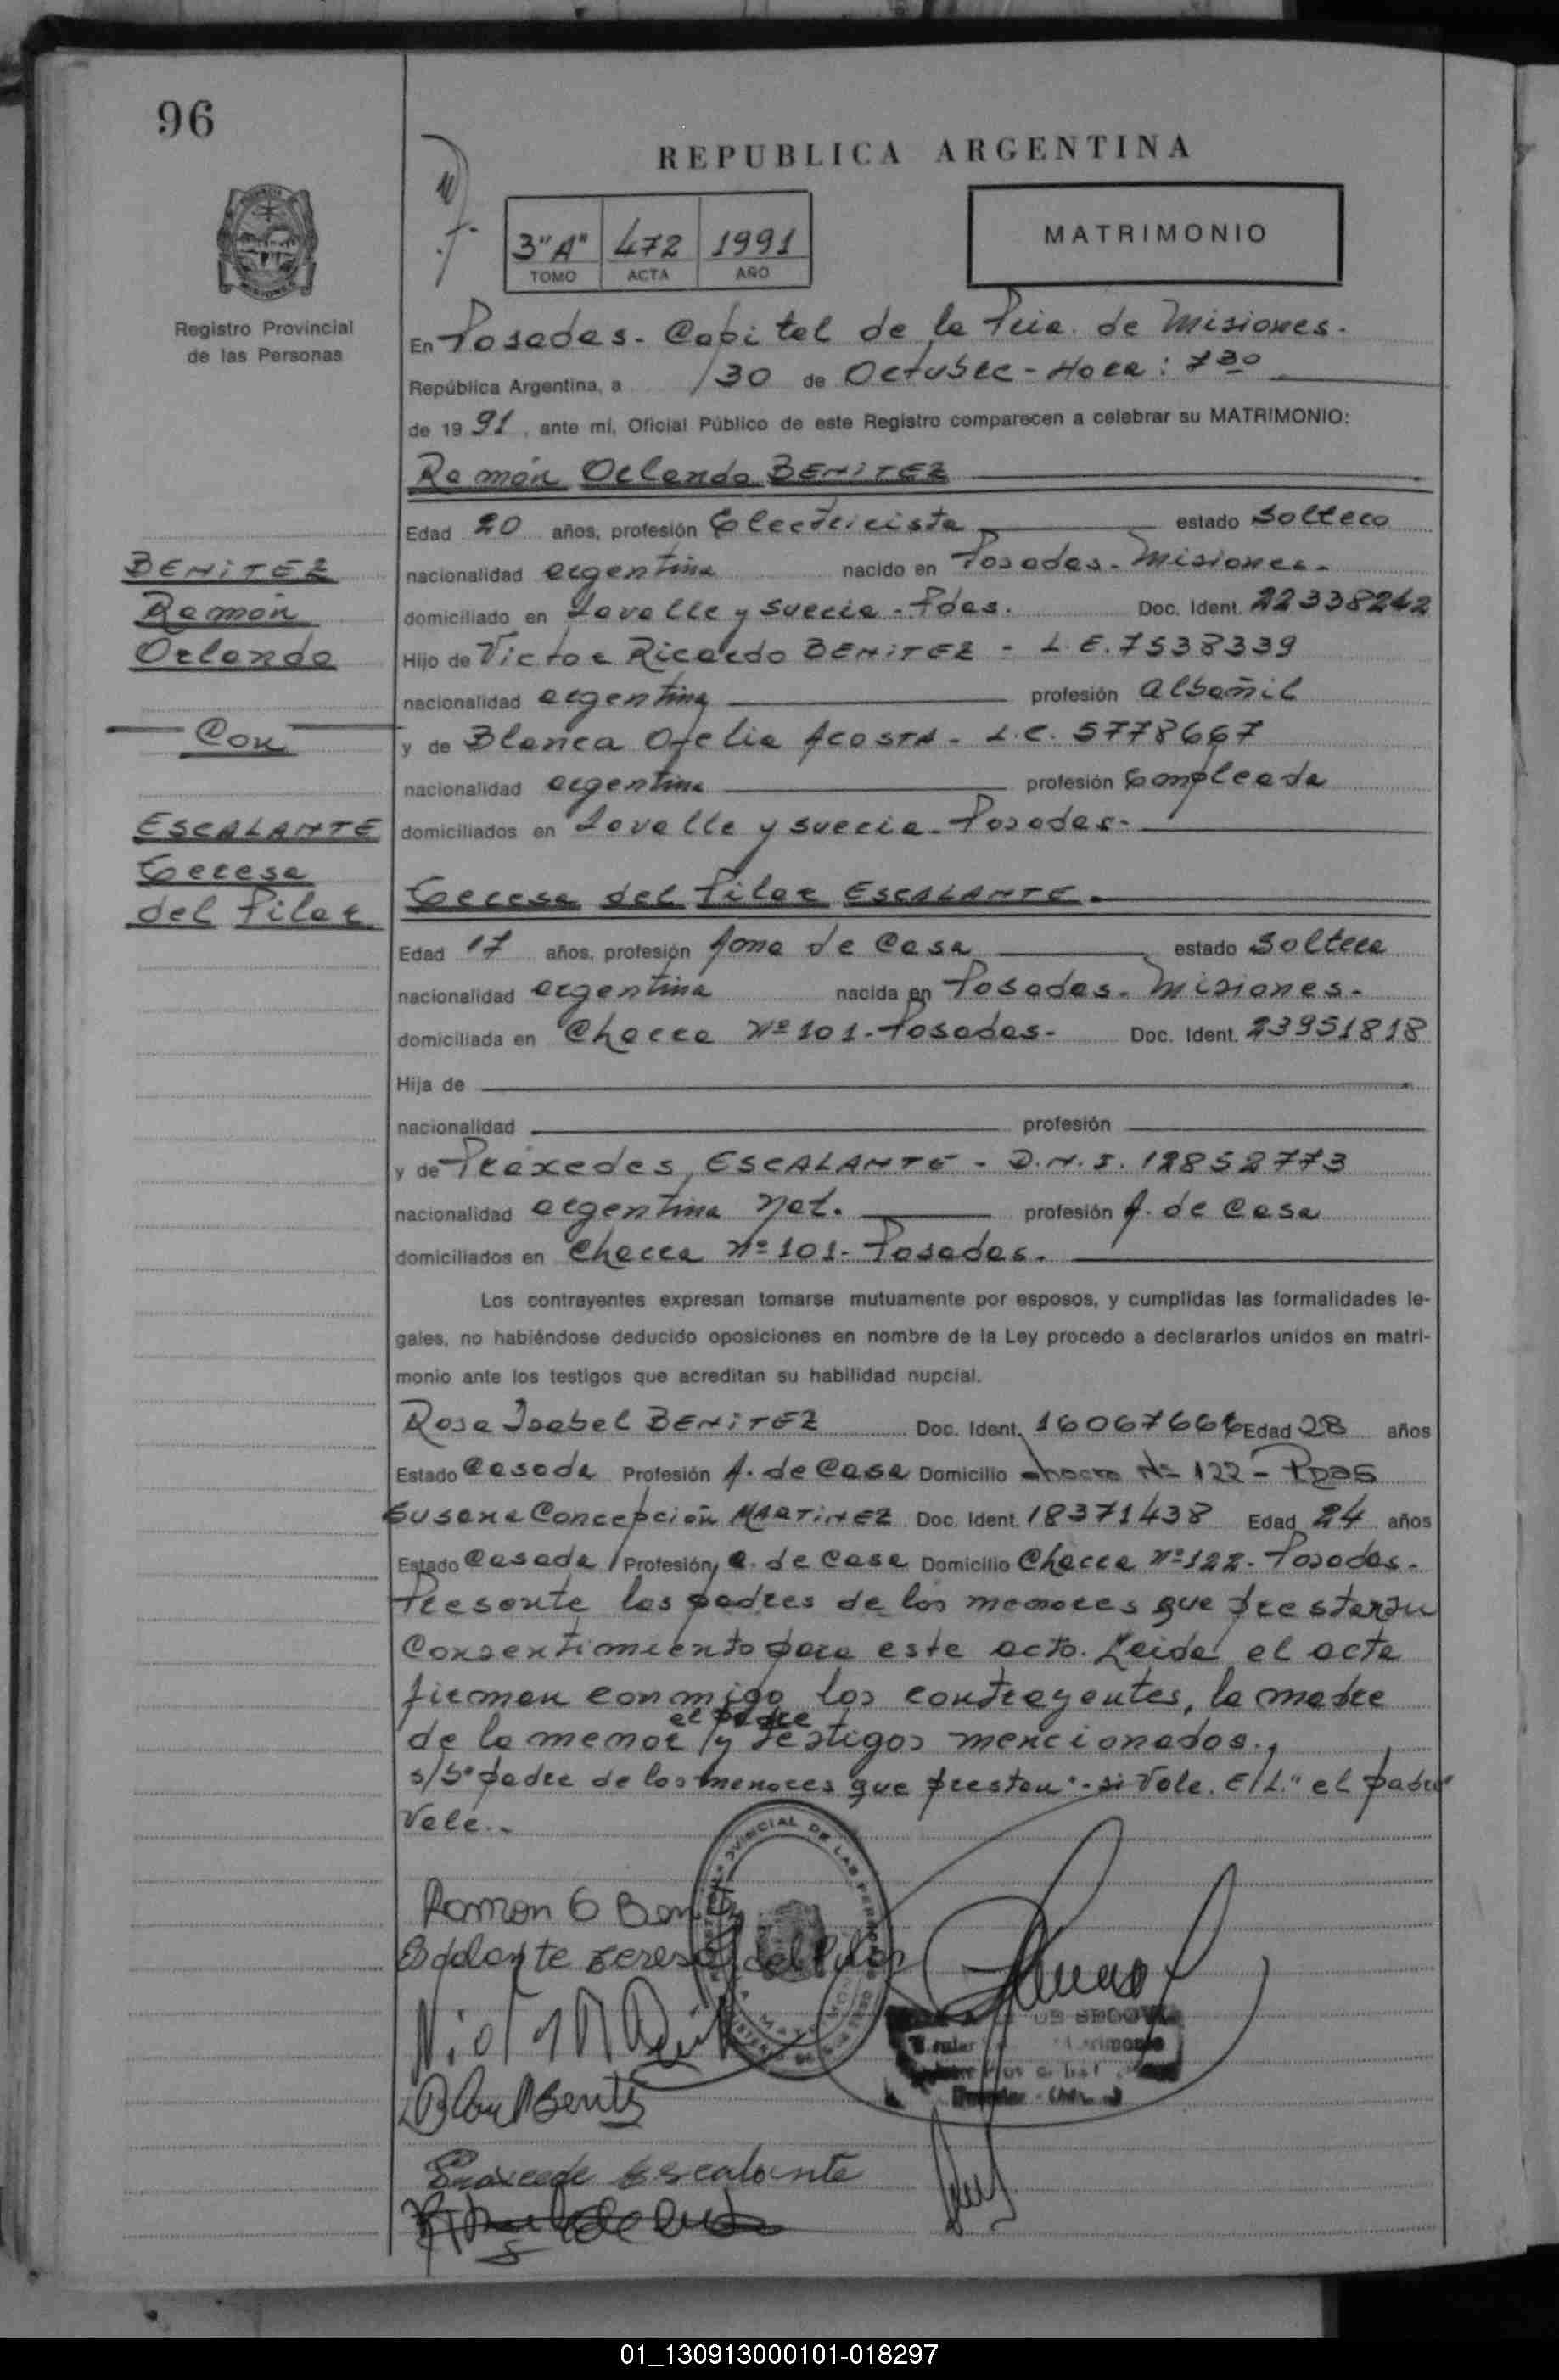 96
REPUBLICA ARGENTINA
3"A" 472 1991
TOMO ACTA AÑO
MATRIMONIO
Registro Provincial
de las Personas
En Posadas - Capital de la Pcia. de Misiones.
República Argentina, a 30 de Octubre - Hora: 7 30
de 1991, ante mi, Oficial Público de este Registro comparecen a celebrar su MATRIMONIO:
Ramón Orlando BENITEZ
Edad 20 años, profesión Electricista estado Soltero
nacionalidad argentina nacido en Posadas - Misiones.
domiciliado en Lavalle y Suecia - Pdas. Doc. Ident. 22338242
Hijo de Victor Ricardo BENITEZ - L.E. 7538339
nacionalidad argentina profesión albañil
y de Blanca Ofelia ACOSTA - L.C. 5778667
nacionalidad argentina profesión Empleada
domiciliados en Lavalle y Suecia - Posadas -
BENITEZ
Ramón
Orlando
Con
ESCALANTE
Teresa
del Pilar
Teresa del Pilar ESCALANTE.
Edad 17 años, profesión Ama de Casa estado Soltera
nacionalidad argentina nacida en Posadas - Misiones -
domiciliada en Chacra Nº 101 - Posadas - Doc. Ident. 23951818
Hija de
nacionalidad profesión
y de Práxedes ESCALANTE - D.N.I. 12852773
nacionalidad argentina nat. profesión A. de Casa
domiciliados en Chacra Nº 101 - Posadas.
Los contrayentes expresan tomarse mutuamente por esposos, y cumplidas las formalidades le-
gales, no habiéndose deducido oposiciones en nombre de la Ley procedo a declararlos unidos en matri-
monio ante los testigos que acreditan su habilidad nupcial.
Rosa Isabel BENITEZ Doc. Ident. Edad 28 años
Estado Casada Profesión A. de Casa Domicilio Nº 122 - Pdas
Susana Concepción MARTINEZ Doc. Ident. 18371438 Edad 24 años
Estado Casada Profesión A. de Casa Domicilio Chacra Nº 122 - Posadas -
Presente los padres de los menores que prestan su
Consentimiento para este acto. Leída el acta
firman conmigo los contrayentes, la madre
el padre
de la menor y testigos mencionados.
s/b" padre de los menores que prestan" - si Vale. E/L." el padre"
Vale.
Ramon O
Escalante Teresa del Pilar
Escalante
01_130913000101-018297